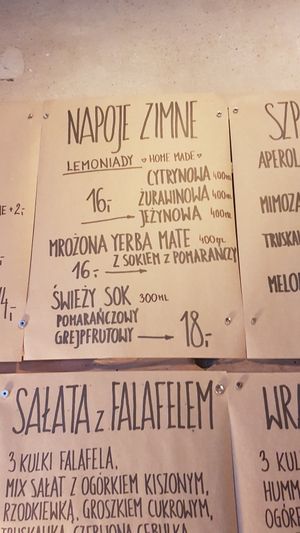 NAPOJE ZIMNE
LEMONIADY ♥ HOME MADE ♥
CYTRYNOWA 400ml
16,- ŻURAWINOWA 400ml
JEŻYNOWA 400ml
MROŻONA YERBA MATE 400ml
16,- Z SOKIEM Z POMARAŃCZY
ŚWIEŻY SOK 300ML
POMARAŃCZOWY
GREJPFRUTOWY 18,-
+2,-
4,-
SZP
APEROL
MIMOZA
TRUSKA
MELO
SAŁATA Z FALAFELEM
3 KULKI FALAFELA,
MIX SAŁAT Z OGÓRKIEM KISZONYM,
RZODKIEWKĄ, GROSZKIEM CUKROWYM,
WRA
3 KUL
HUMM
OGÓRE